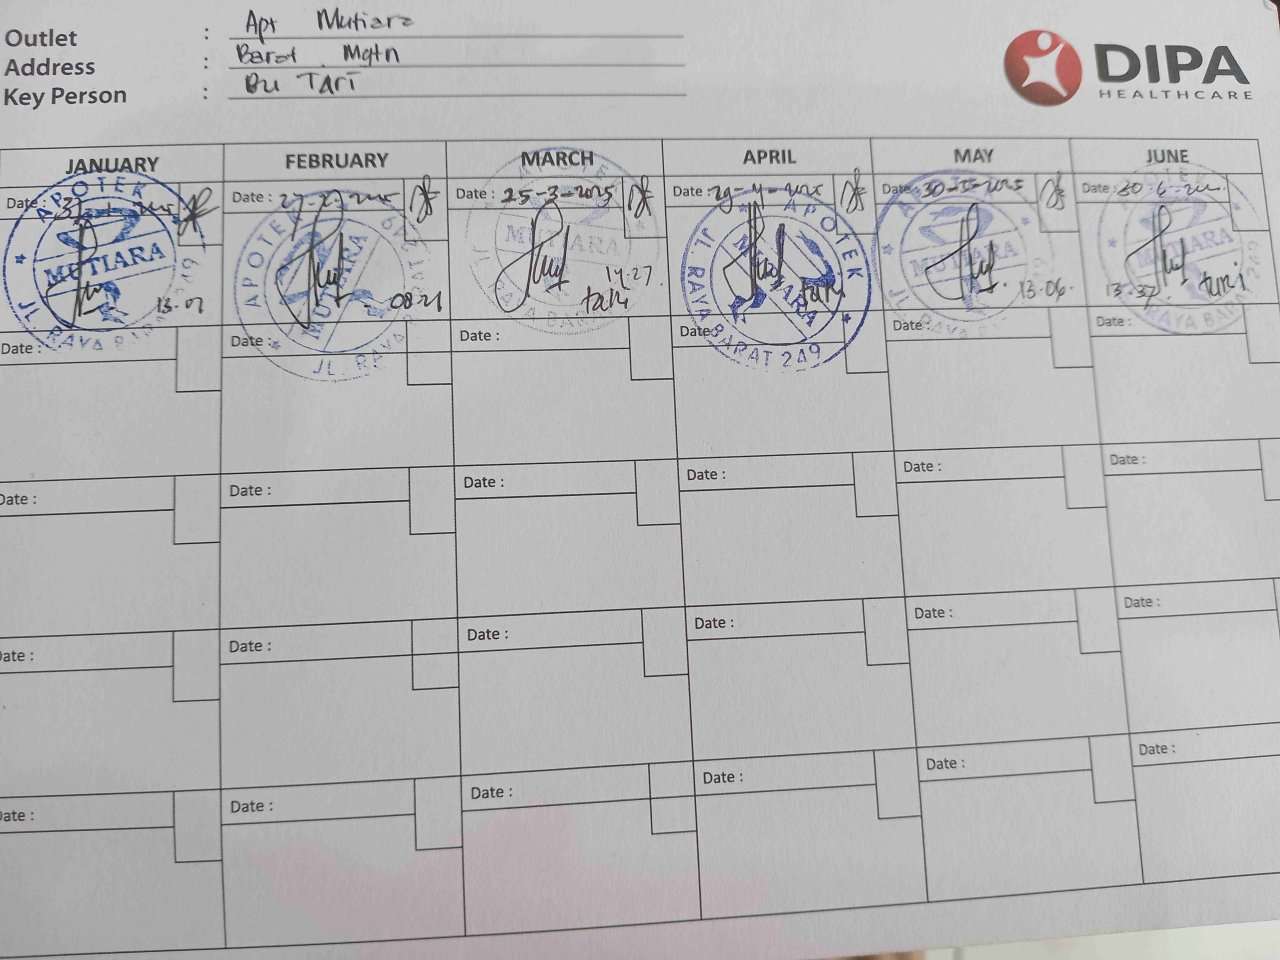 Outlet : Apt Mutiara
Address : Barat Mgtn
Key Person : Bu TARI
DIPA
HEALTHCARE
JANUARY FEBRUARY MARCH APRIL MAY JUNE
Date : Date : 27-2-2025 Date : 25-3-2025 Date : 29-4-2025 Date : 30-5-2025 Date : 30-6-20
APOTEK MUTIARA JL. RAYA BARAT 249
13.07
APOTEK MUTIARA JL. RAYA BARAT 249
08.21
APOTEK MUTIARA RAYA BARAT
14.27
tari
APOTEK MUTIARA JL. RAYA BARAT 249
tari
APOTEK MUTIARA JL. RAYA
13.06
APOTEK MUTIARA RAYA BARAT 249
13.37 tari
Date : Date : Date : Date : Date : Date :
Date : Date : Date : Date : Date : Date :
Date : Date : Date : Date : Date : Date :
Date : Date : Date : Date : Date : Date :